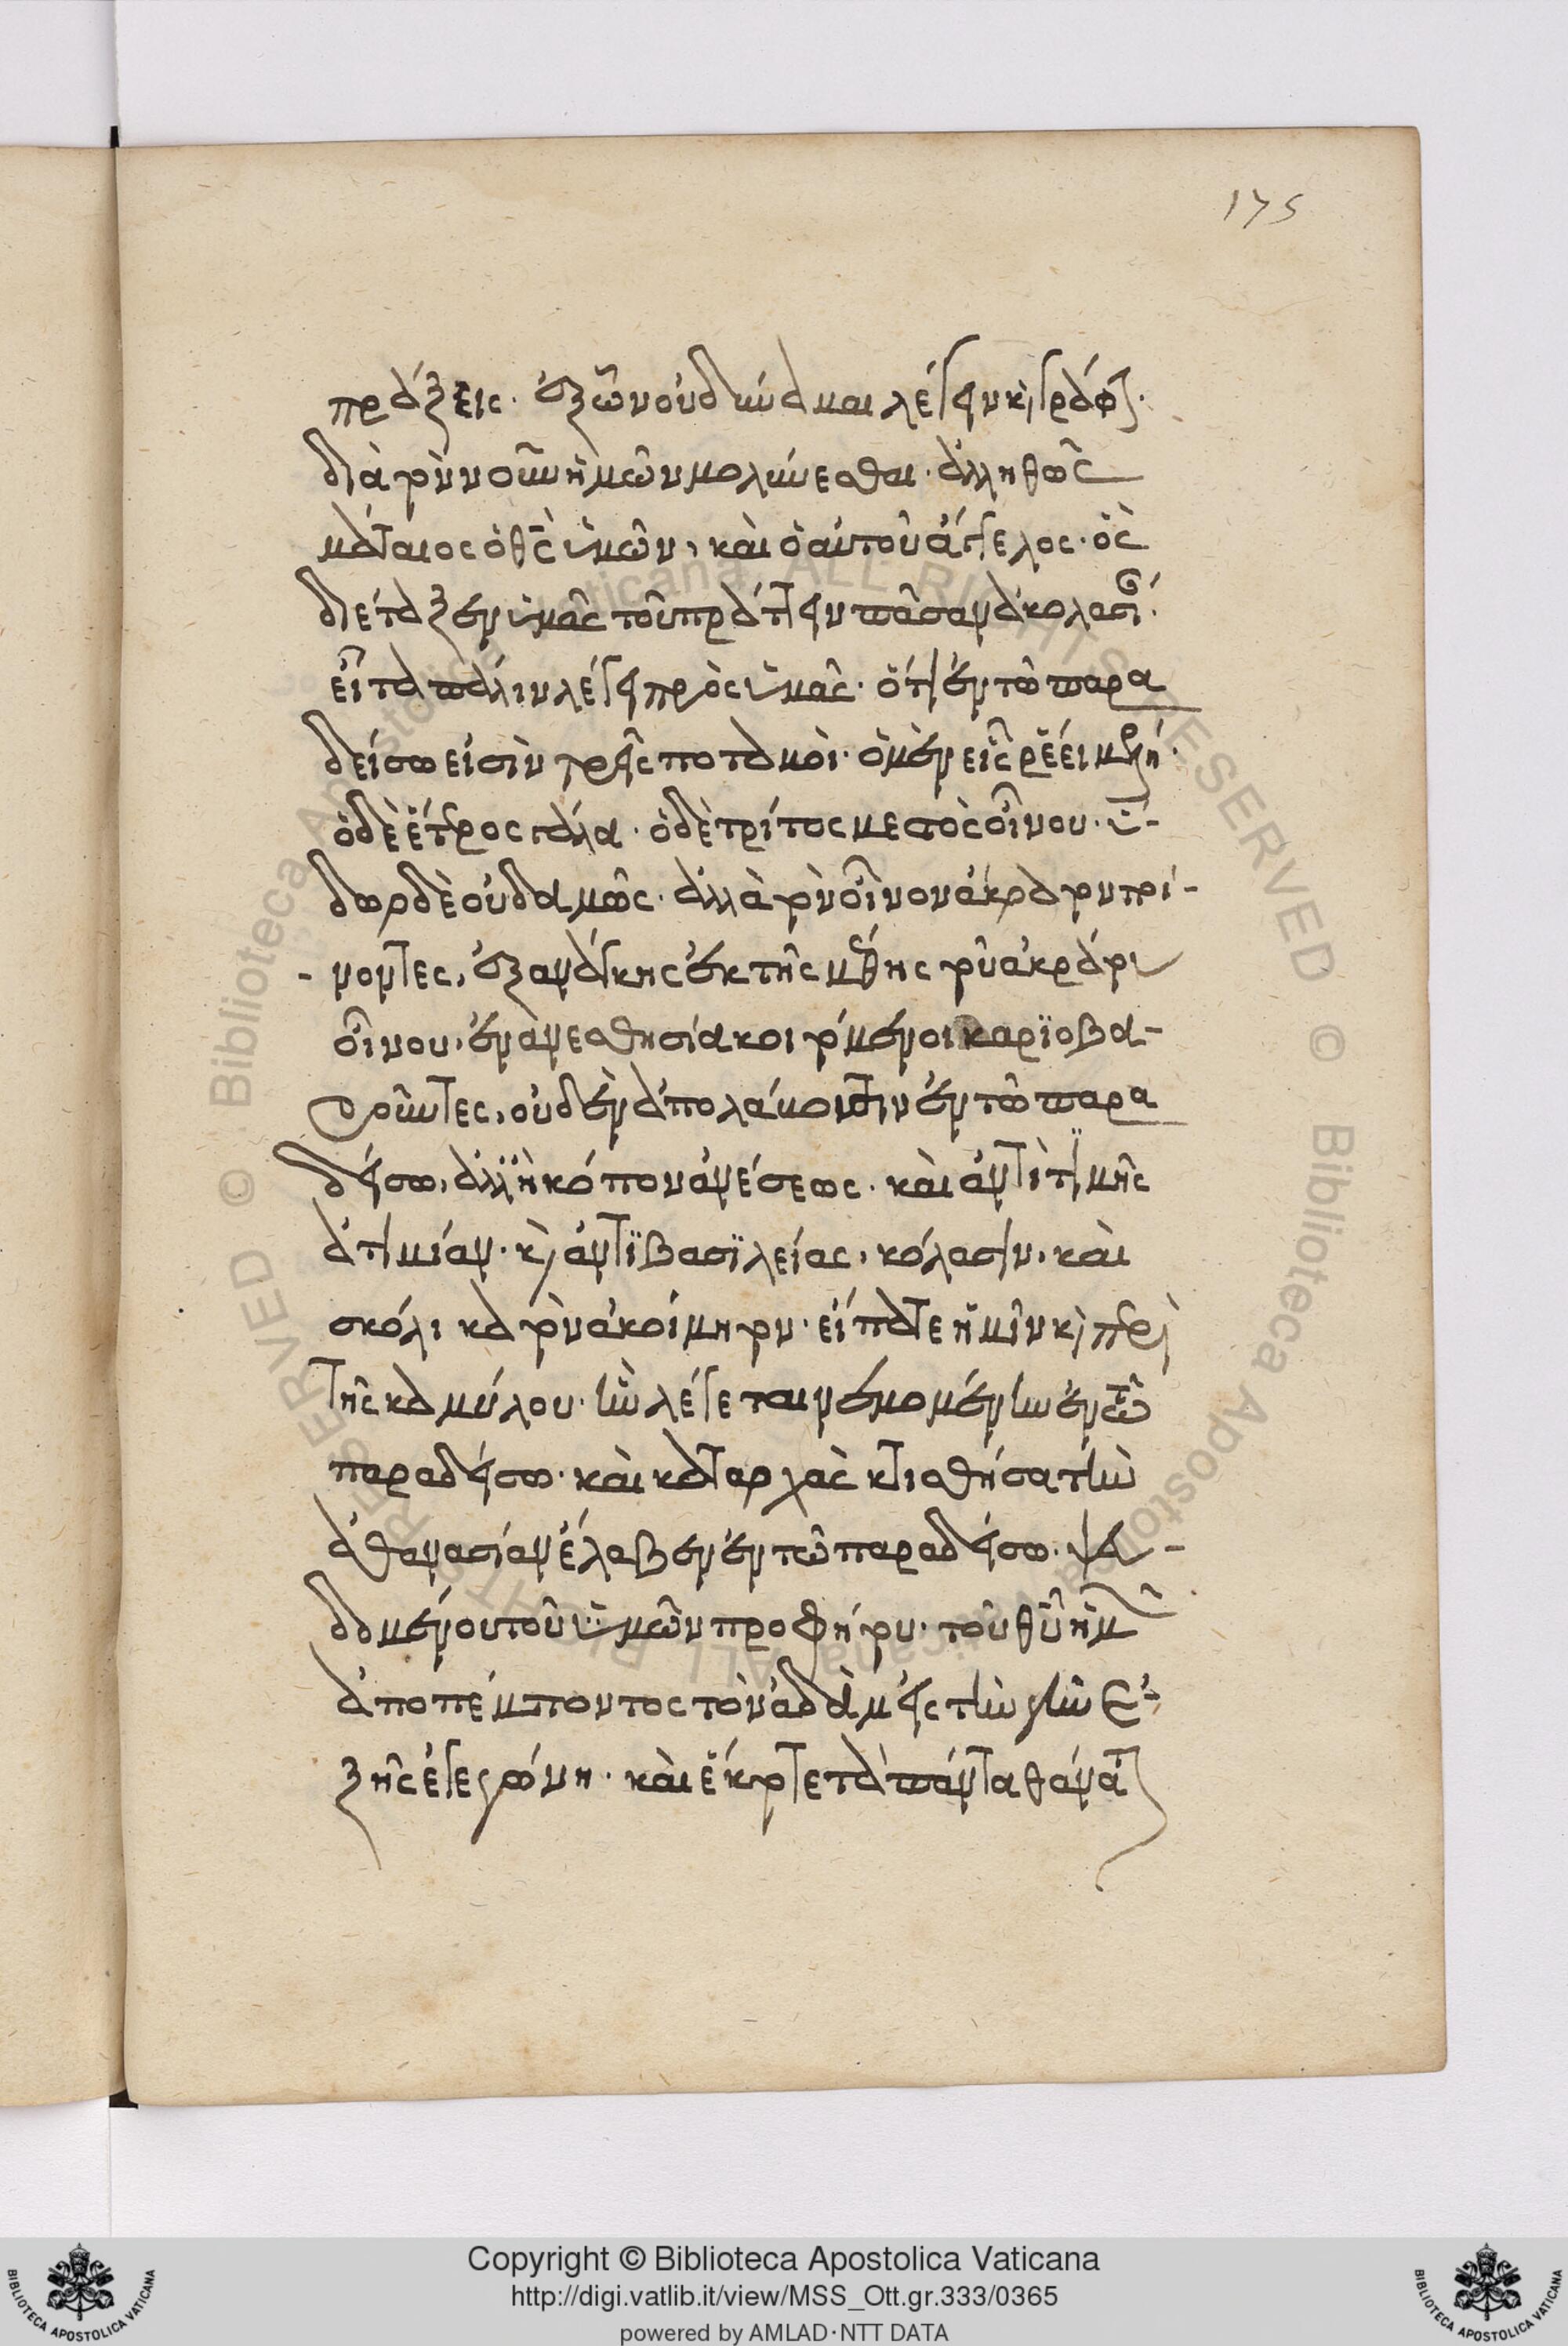 175
πράξεις. ἐξ ὧν οὐ δύναμαι λέγειν κ(αὶ) γράφ(ειν).
διὰ τὸν νοῦν ἡμῶν μολύνεσθαι. ἀλληθῶς
μάταιος ὁ θ(εὸ)ς ὑμῶν, καὶ ὁ αὐτοῦ ἄγγελος. ὃς
διέταξεν ὑμᾶς τοῦ πράττειν πᾶσαν ἀκολασί.
εἶτα πάλιν λέγει πρὸς ὑμᾶς. ὅτι ἐν τῶ παρα
δείσω εἰσὶν τρεῖς ποταμοὶ. ὁ μὲν εἷς ῥέει μέλι.
ὁ δὲ ἕτερος γάλα. ὁ δὲ τρίτος μεστὸς οἴνου. ὕ-
δωρ δὲ οὐδαμῶς. ἀλλὰ τὸν οἶνον ἄκρατον πί-
νοντες, ἐξ ἀνάγκης ἐκ τῆς μέθης τοῦ ἀκράτου
οἴνου,
δείσω, ἀλλ' ἢ κόπον ἀνέσεως. καὶ ἀντὶ τιμῆς
ἀτιμίαν. κ(αὶ) ἀντὶ βασιλείας, κόλασιν, καὶ
σκόλικα τὸν ἀκοίμητον. εἴπατε ἡμῖν κ(αὶ) περὶ
τῆς καμήλου. ἣν λέγεται γενομένην ἐν τῶ
παραδείσω. καὶ κατ' ἀρχὰς κτισθῆσα τὴν
ἀθανασίαν ἔλαβεν ἐν τῶ παραδείσω. ψευ-
δομένου τοῦ ὑμῶν προφήτου. τοῦ θ(εο)ῦ ἡμῶν
ἀποπέμποντος τὸν ἀδὰμ εἰς τὴν γῆν ἐ-
ξ ἧς ἐγεγώνη. καὶ ἔκτοτε τὰ πάντα θάνατ